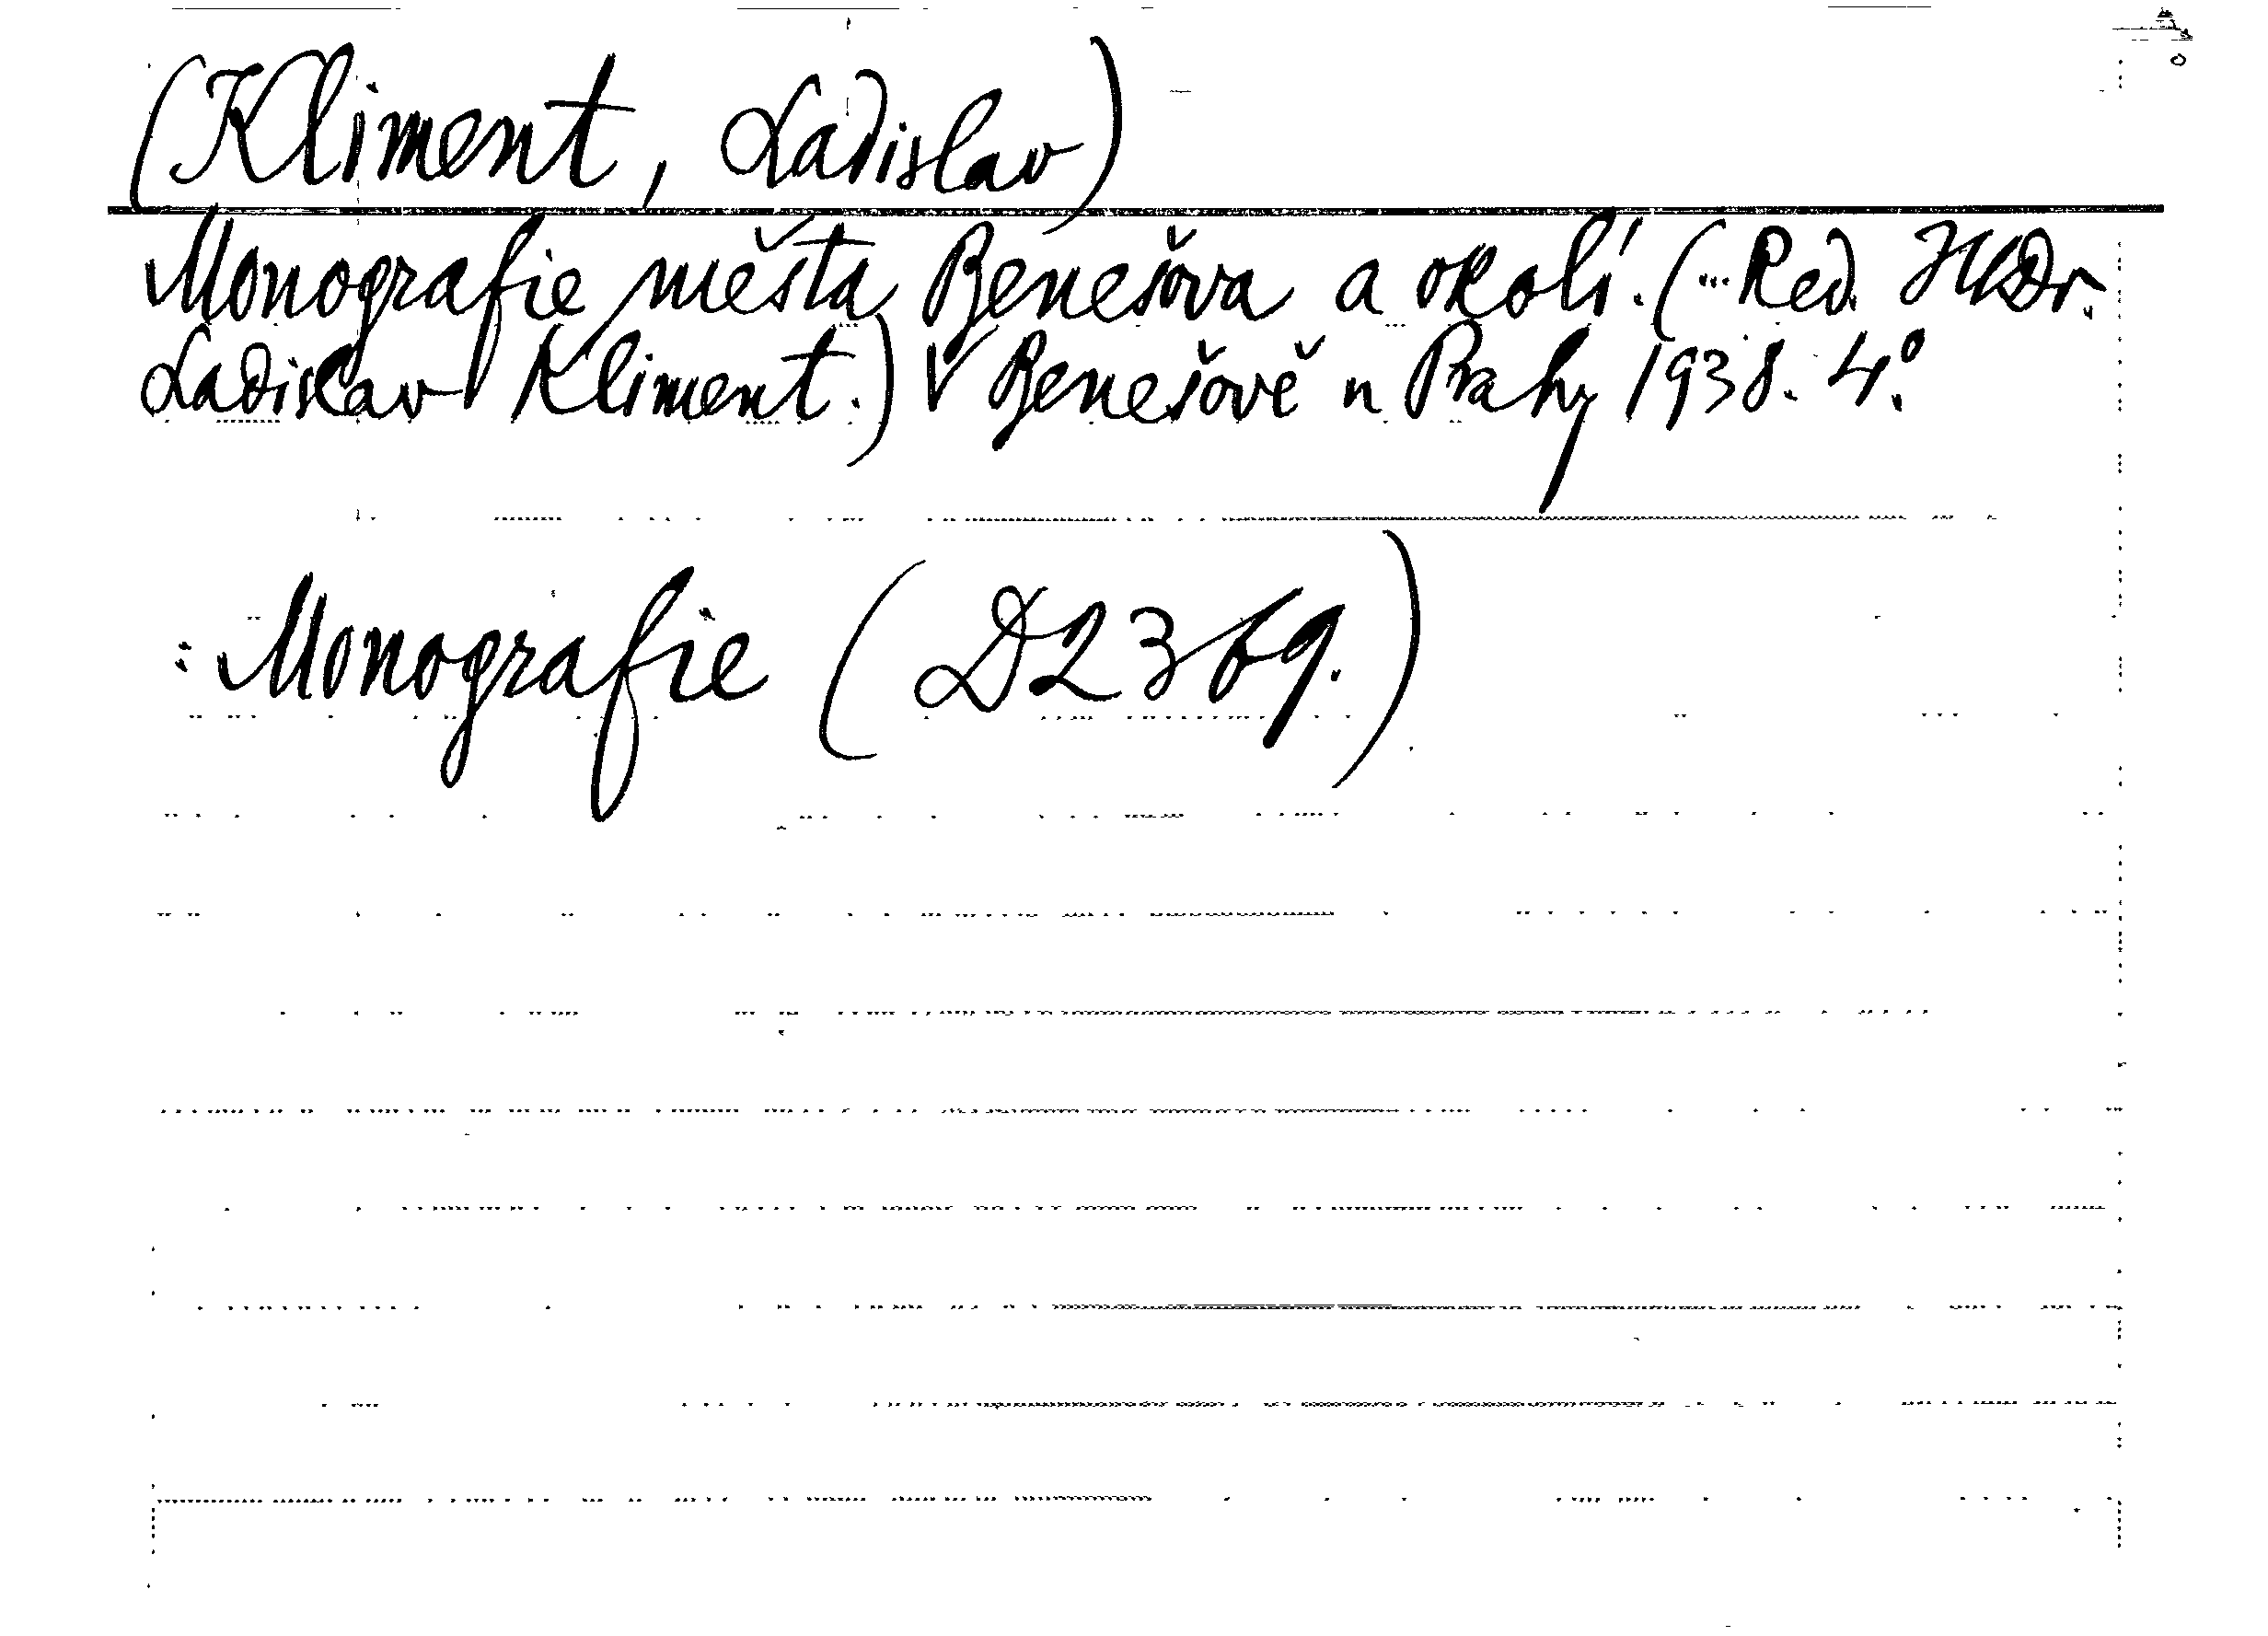 (Kliment, Ladislav)
Monografie města Benešova a okolí. (... Red. JUDr.
Ladislav Kliment.) V Benešově n Prahy 1938. 4°.
: Monografie (D2369.)